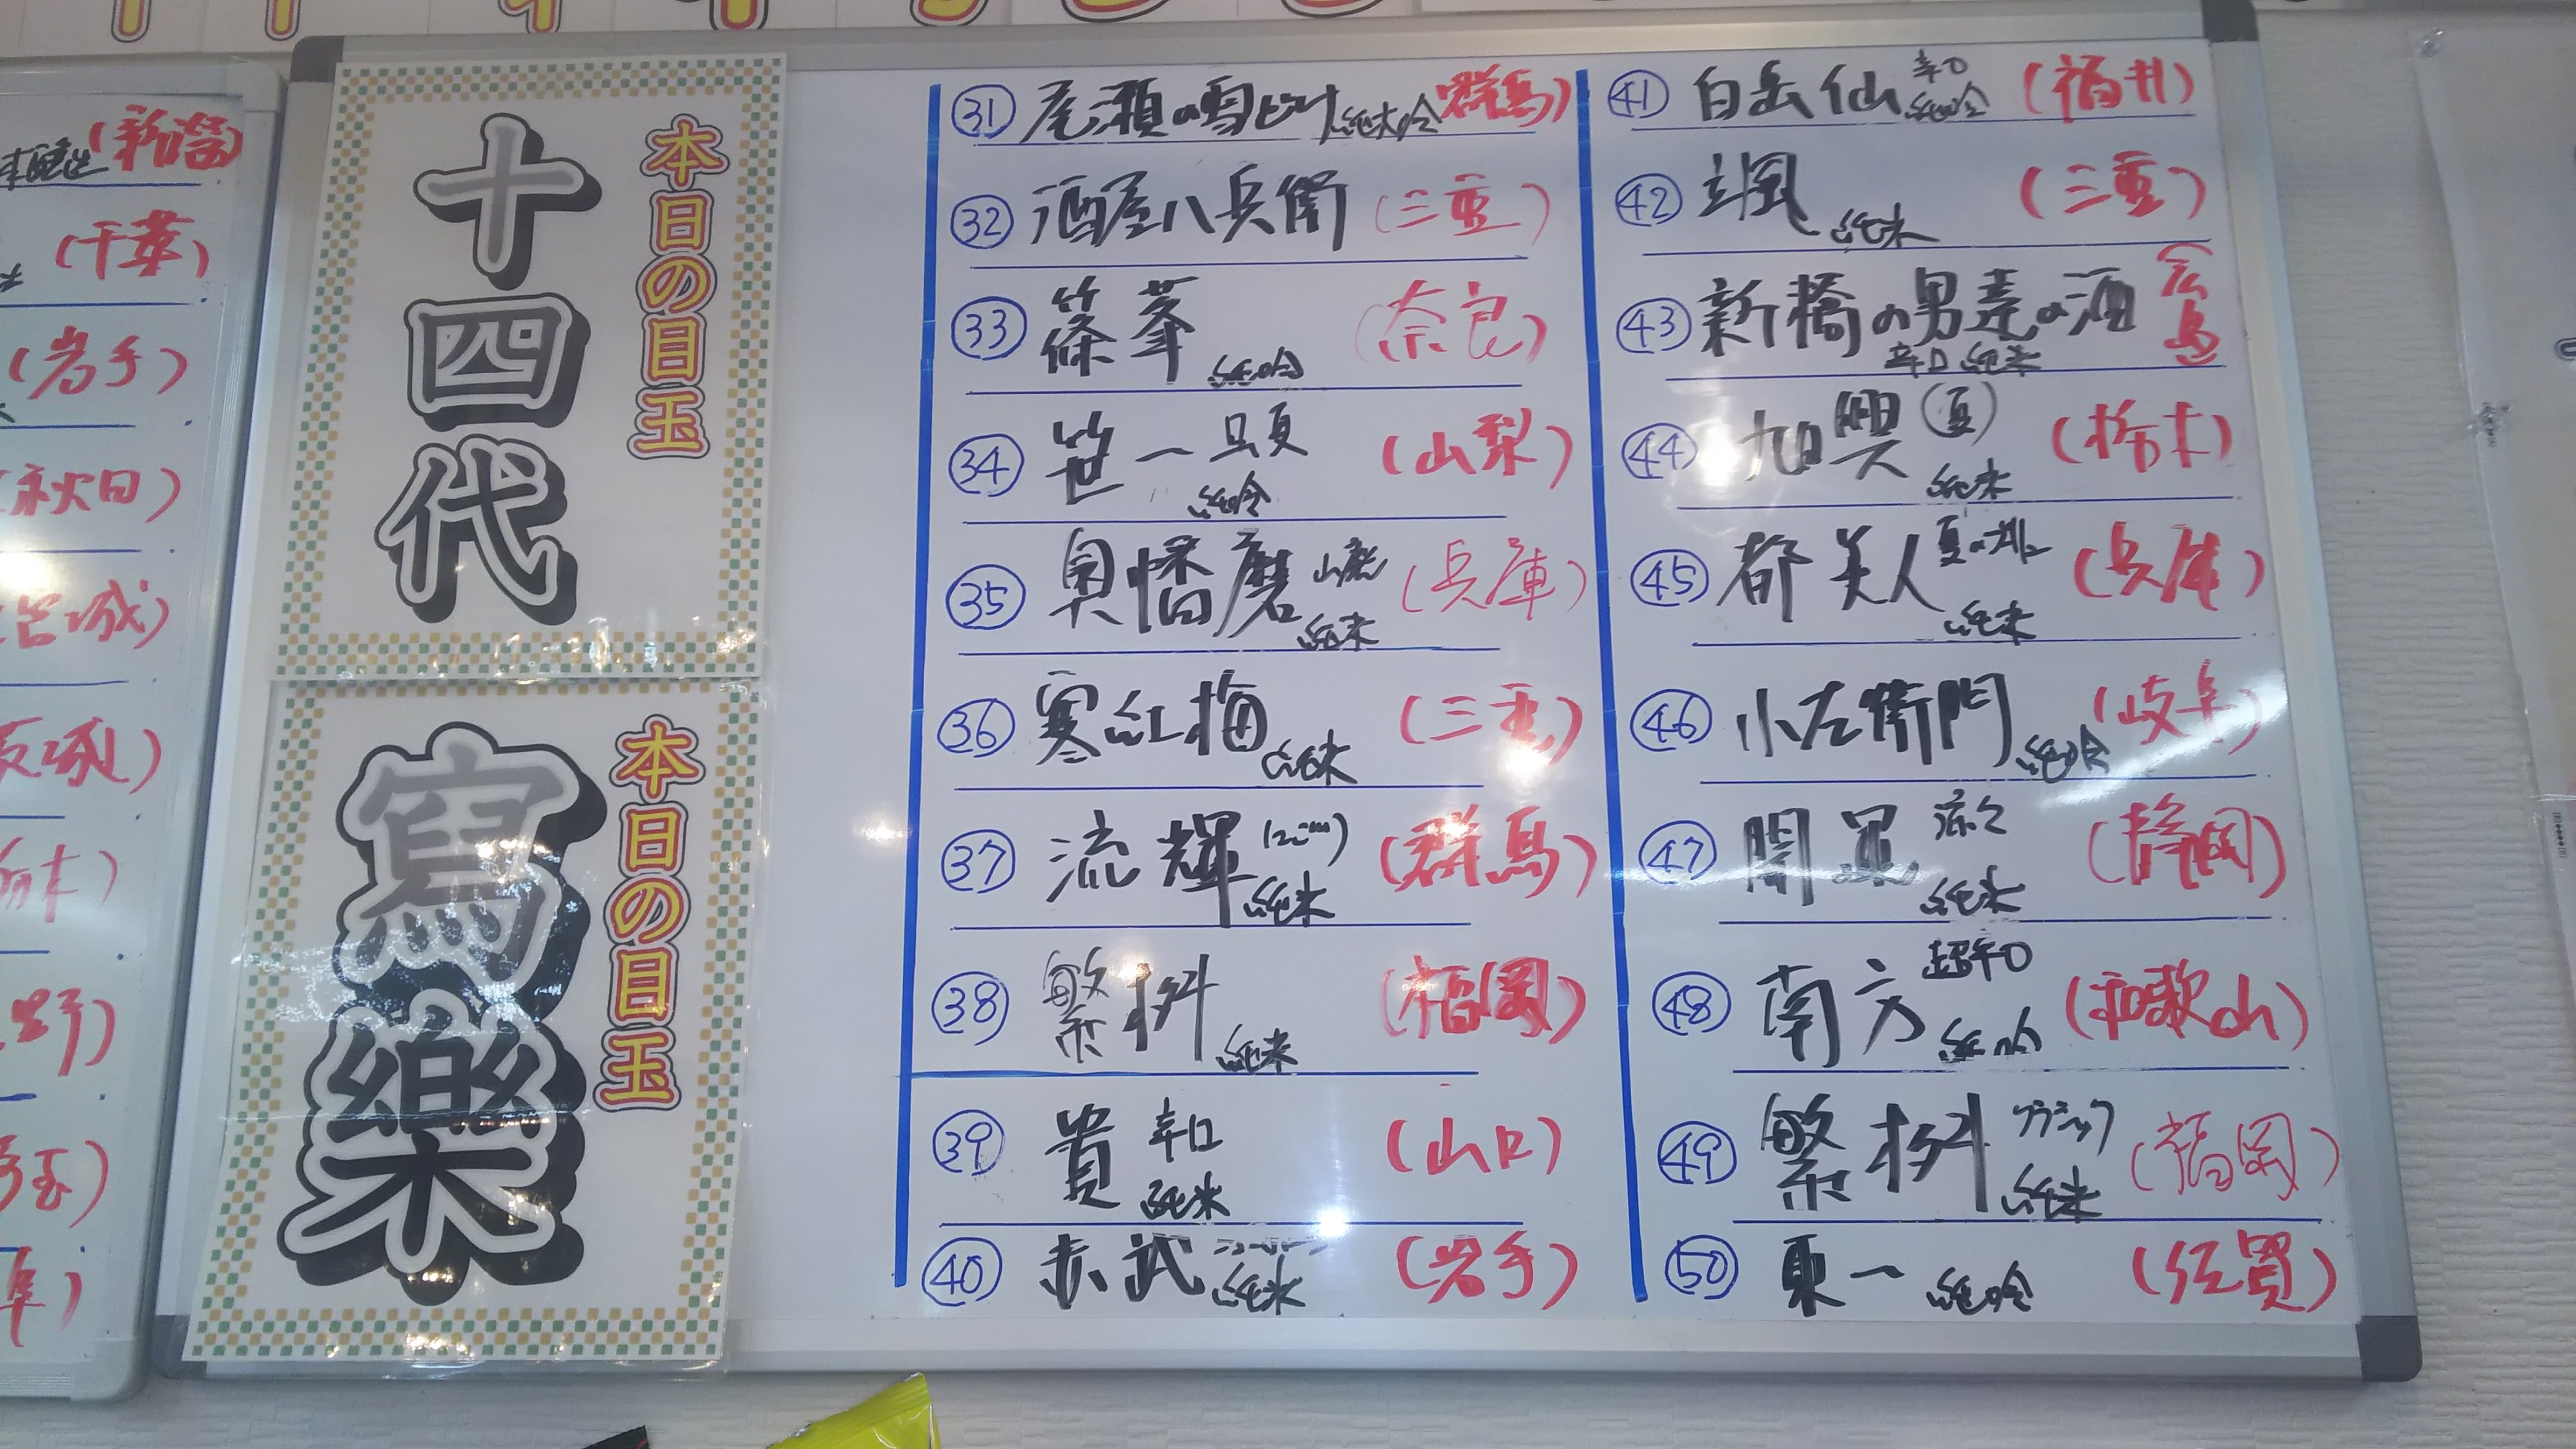 (新潟)
本醸造
(千葉)
(岩手)
(秋田)
(宮城)
(茨城)
(栃木)
(長野)
(埼玉)
(岐阜)
本日の目玉
十四代
本日の目玉
寫樂
㉛ 尾瀬の雪どけ 純大吟 (群馬)
㉜ 酒屋八兵衛 (三重)
㉝ 篠峯 純吟 (奈良)
㉞ 笹一 純吟 (山梨)
㉟ 奥播磨 山廃 純米 (兵庫)
㊱ 寒紅梅 純米 (三重)
㊲ 流輝 純米 (群馬)
㊳ 繁桝 純米 (福岡)
㊴ 貴 辛口 純米 (山口)
㊵ 赤武 純米 (岩手)
㊶ 白岳仙 辛口 純吟 (福井)
㊷ 颯 純米 (三重)
㊸ 新橋の男達の酒 辛口 純米 広島
㊹ 旭興 (夏) 純米 (栃木)
㊺ 都美人 純米 (兵庫)
㊻ 小左衛門 純吟 (岐阜)
㊼ 開運 涼々 純米 (静岡)
㊽ 南方 超辛口 純吟 (和歌山)
㊾ 繁桝 クラシック 純米 (福岡)
㊿ 東一 純吟 (佐賀)